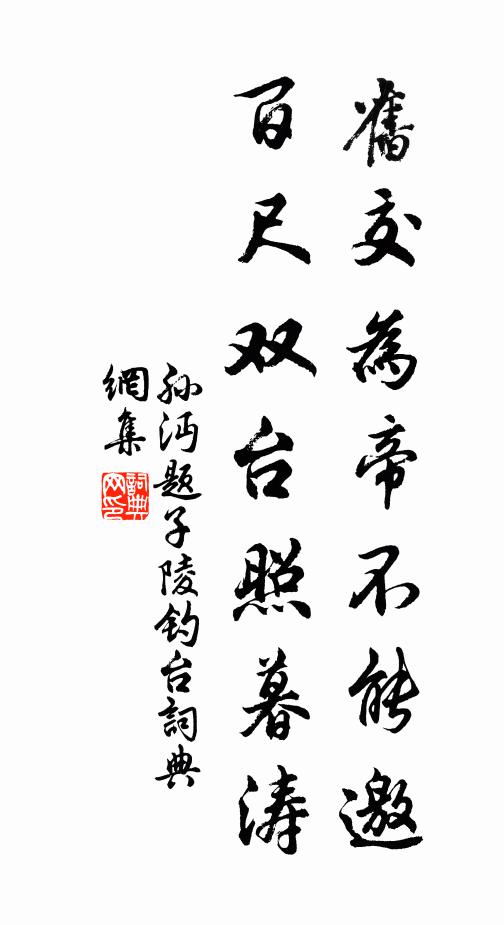 舊交為帝不能邀
百尺双台照暮涛
孙沔题子陵钓台詞典
網集
詞典网印